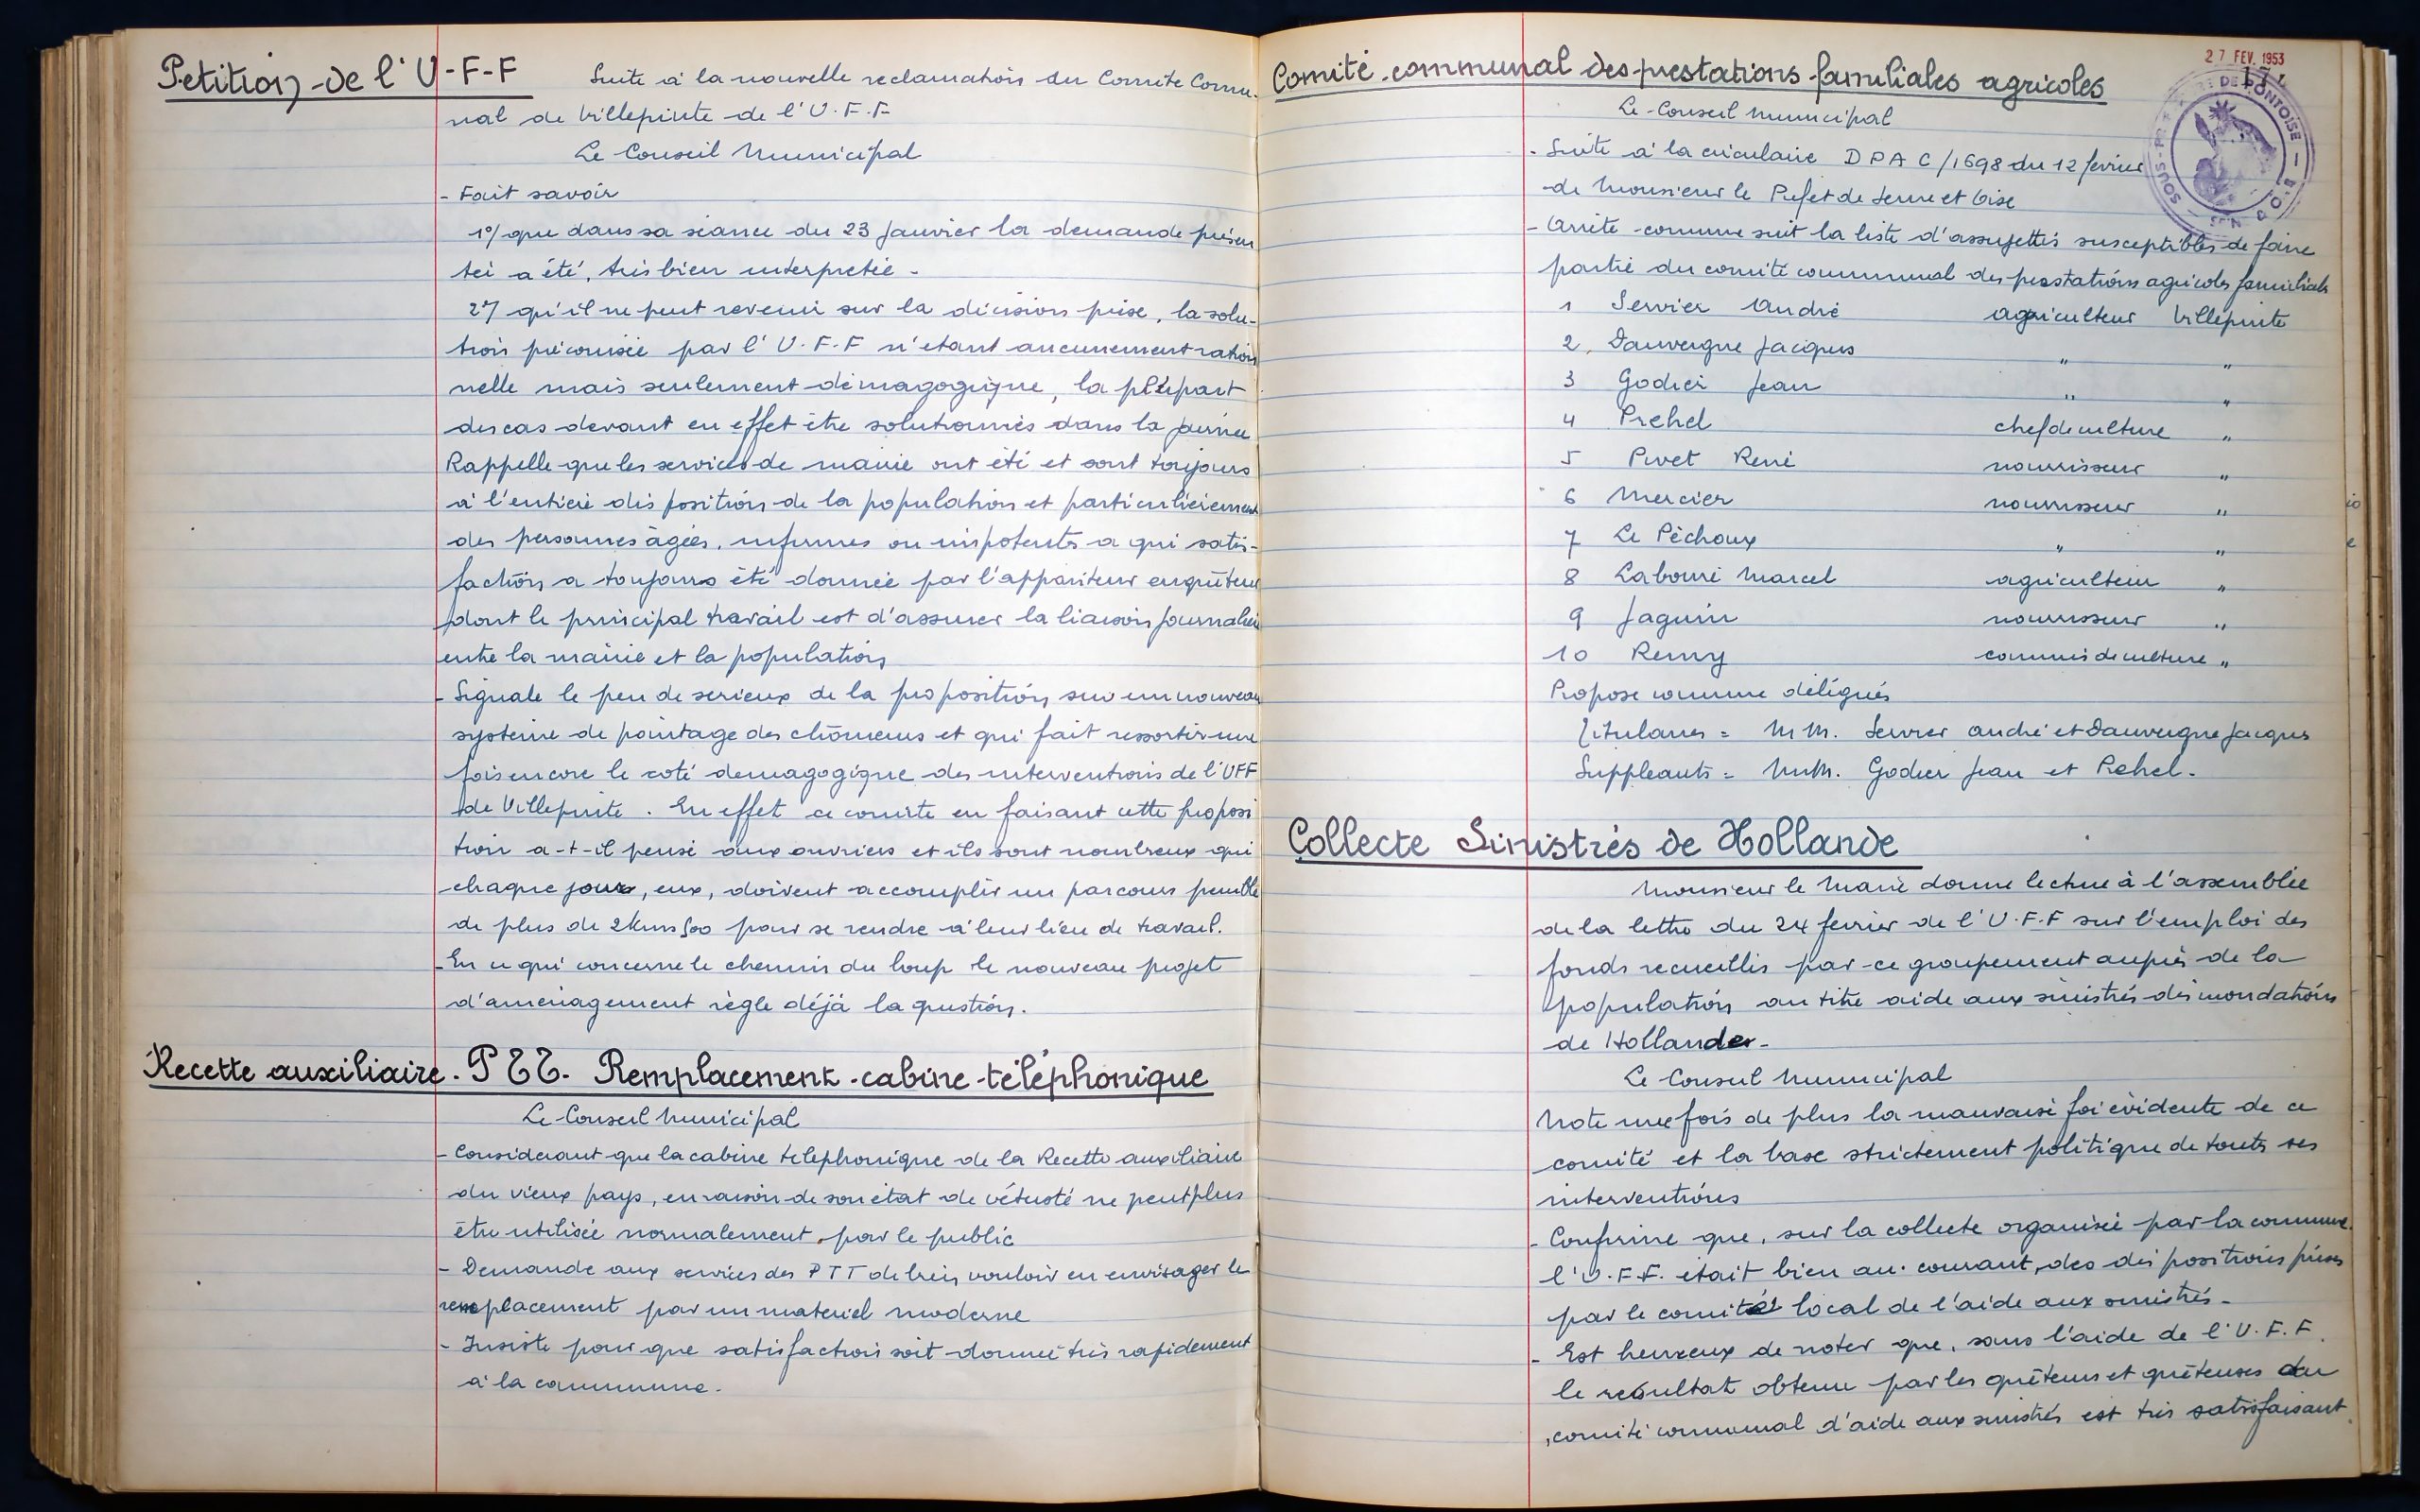 Petition de l'U-F-F
Suite à la nouvelle reclamation du Comite Commu-
nal de Villepinte de l'U.F.F.
Le Conseil Municipal
- Fait savoir
1°/ que dans sa séance du 23 Janvier la demande présen
tée a été, très bien interpretée -
2°/ qu'il ne peut revenir sur la décision prise, la solu-
tion préconisée par l'U.F.F n'etant aucunement ration
nelle mais seulement démagogique, la plupart
des cas devant en effet être solutionnés dans la journée
Rappelle que les services de mairie ont été et sont toujours
à l'entière disposition de la population et particulièrement
des personnes âgées, infirmes ou impotents a qui satis-
faction a toujours été donnée par l'appariteur enquêteur
dont le principal travail est d'assurer la liaison journalière
entre la mairie et la population
- Signale le peu de serieux de la proposition sur un nouveau
systeme de pointage des chômeurs et qui fait ressortir une
fois encore le coté demagogique des interventions de l'UFF
de Villepinte. En effet ce comite en faisant cette proposi
tion a-t-il pensé aux ouvriers et ils sont nombreux qui
chaque jour, eux, doivent accomplir un parcours penible
de plus de 2kms500 pour se rendre à leur lieu de travail.
- En ce qui concerne le chemin du loup le nouveau projet
d'aménagement règle déjà la question.
Recette auxiliaire. PTT. Remplacement cabine téléphonique
Le Conseil Municipal
- Considerant que la cabine telephonique de la Recette auxiliaire
du vieux pays, en raison de son état de vétusté ne peut plus
être utilisée normalement, par le public
- Demande aux services des PTT de bien vouloir en envisager le
remplacement par un materiel moderne
- Insiste pour que satisfaction soit donnée très rapidement
à la commune.
27 FEV. 1953
SOUS-PREFECTURE DE PONTOISE
Comité communal des prestations familiales agricoles
Le Conseil Municipal
- Suite à la circulaire DPAC/1698 du 12 fevrier
de Monsieur le Prefet de Seine et Oise
- Arrête comme suit la liste d'assujettis susceptibles de faire
partie du comité communal des prestations agricoles familiales
1 Servier André agriculteur Villepinte
2. Dauvergne Jacques " "
3 Godier Jean " "
4 Prehel chef de culture "
5 Pivet René nourrisseur "
6 Mercier nourrisseur "
7 Le Péchoux " "
8 Labouré Marcel agriculteur "
9 Jaquin nourrisseur "
10 Remy commis de culture "
Propose comme délégués
Titulaires = MM. Servier andré et Dauvergne Jacques
Suppléants = MM. Godier Jean et Prehel.
Collecte Sinistrés de Hollande
Monsieur le Maire donne lecture à l'assemblée
de la lettre du 24 fevrier de l'U.F.F sur l'emploi des
fonds recueillis par ce groupement auprès de la
population au titre aide aux sinistrés des inondations
de Hollande -
Le Conseil Municipal
Note une fois de plus la mauvaise foi évidente de ce
comité et la base strictement politique de toutes ses
interventions
- Confirme que, sur la collecte organisée par la commune
l'U.F.F. etait bien au courant des dispositions prises
par le comité local de l'aide aux sinistrés -
- Est heureux de noter que, sans l'aide de l'U.F.F.
le resultat obtenu par les quêteurs et quêteuses du
comité communal d'aide aux sinistrés est très satisfaisant.